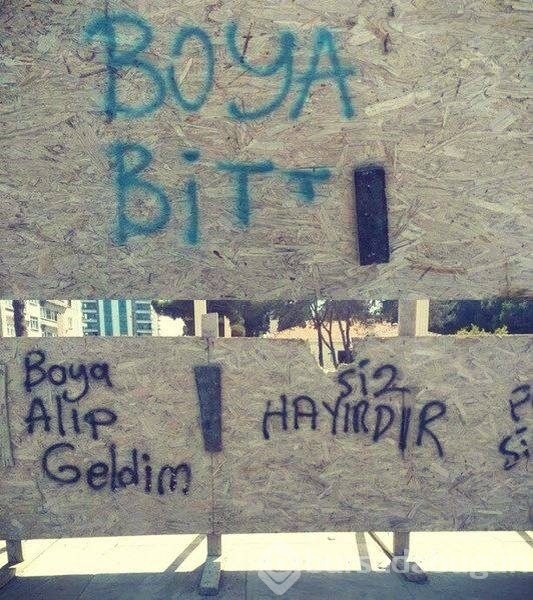 BOYA
BiTT
Boya
Alip
Geldim
Siz
HAYIRDIR